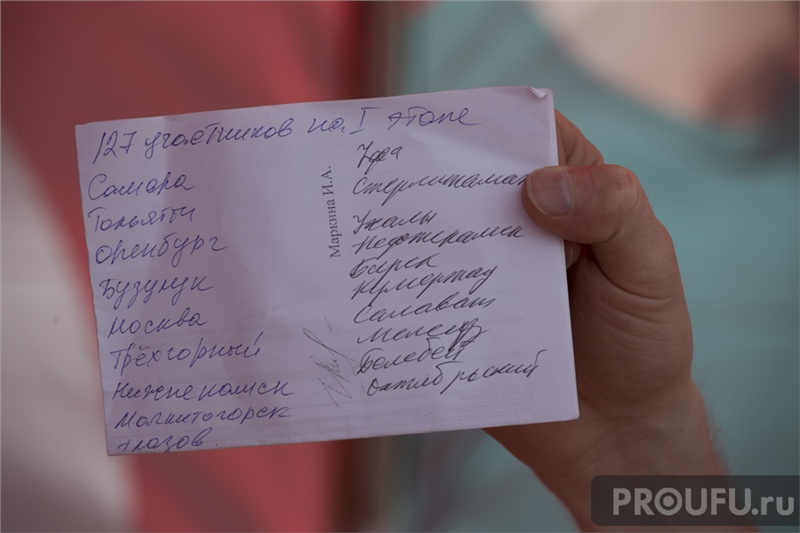 127 участников на I этапе
Самара
Тольятти
Оренбург
Бузулук
Москва
Трёхгорный
Нижнекамск
Магнитогорск
Глазов.
Маркина И.А.
Уфа
Стерлитамак
Учалы
Нефтекамск
Бирск
Кумертау
Салават
Мелеуз
Белебей
Октябрьский
PROUFU.ru